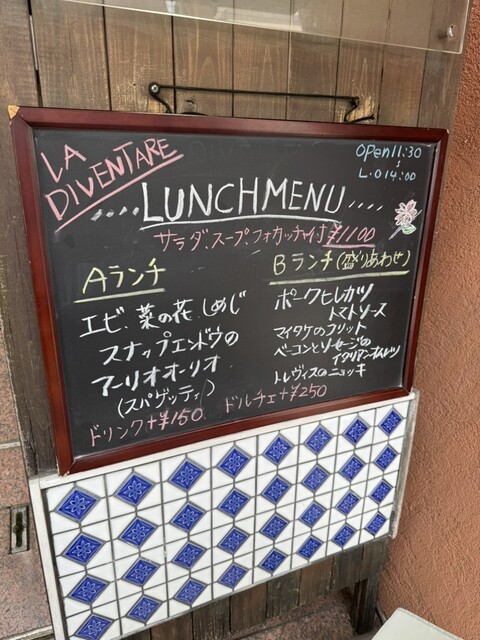 LA
DIVENTARE
OPen 11:30
〜
L.O 14:00
....LUNCH MENU.....
サラダ、スープ、フォカッチャ付 ¥1100
Aランチ
エビ、菜の花、しめじ
スナップエンドウの
アーリオオーリオ
(スパゲッティ)
Bランチ(盛りあわせ)
ポークヒレカツ
トマトソース
マイタケのフリット
ベーコンとソセージの
イタリアンオムレツ
トレヴィスのニョッキ
ドリンク+¥150 ドルチェ+¥250